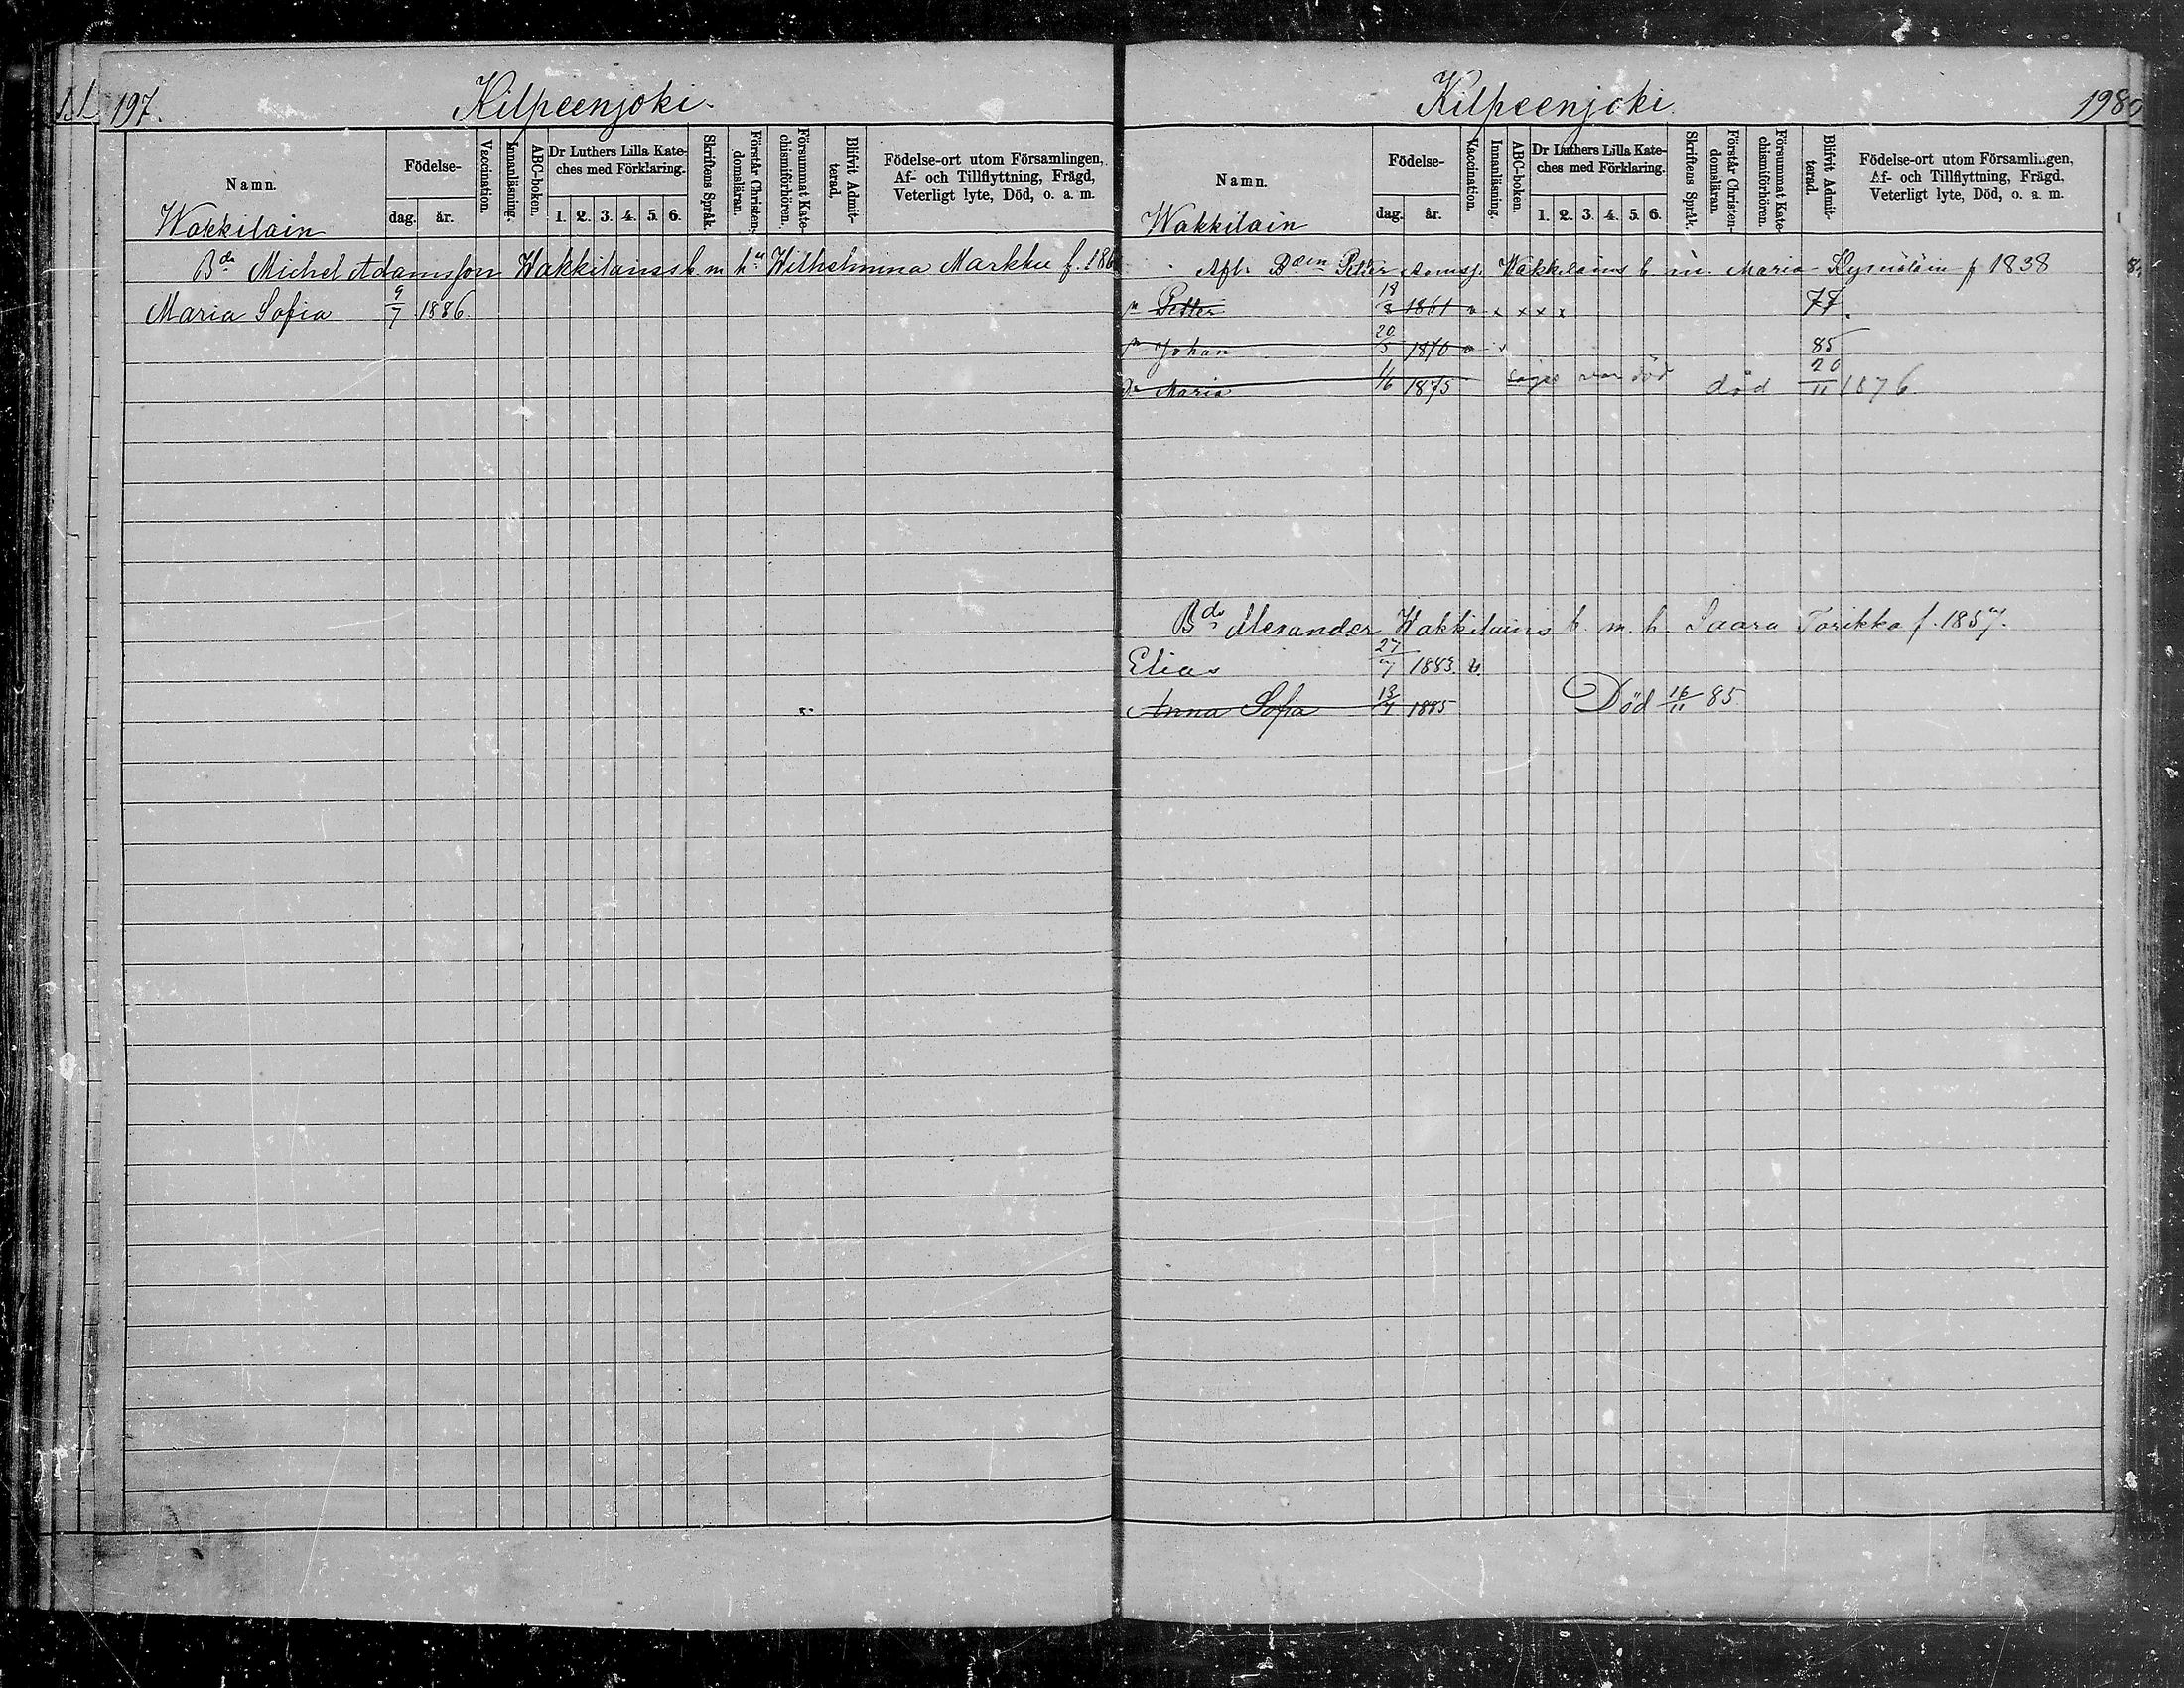 197.
Kilpeenjoki.
Namn.
Födelse-
dag.
år.
Vaccination.
Innanläsning.
ABC-boken.
Dr Luthers Lilla Kate-
ches med Förklaring.
1. 2. 3. 4. 5. 6.
Skriftens Språk.
Förstår Christen-
domsläran.
Försummat Kate-
chismiförhören.
Blifvit Admit-
terad.
Födelse-ort utom Församlingen,
Af- och Tillflyttning, Frägd,
Veterligt lyte, Död, o. a. m.
Wakkilain
Bds Michel Adamsson Wakkilains b. m. hu Wilhelmina Markku f. 186
Maria Sofia 9/7 1886.
Kilpeenjoki
198
Namn.
Födelse-
dag.
år.
Vaccination.
Innanläsning.
ABC-boken.
Dr Luthers Lilla Kate-
ches med Förklaring.
1. 2. 3. 4. 5. 6.
Skriftens Språk.
Förstår Christen-
domsläran.
Försummat Kate-
chismiförhören.
Blifvit Admit-
terad.
Födelse-ort utom Församlingen,
Af- och Tillflyttning, Frägd,
Veterligt lyte, Död, o. a. m.
Wakkilain
Afl. Petter Wakkilains b. m. Maria f 1838
Petter 1861 x x x x 77.
Johan 20/5 1870 85
Maria 1875 var död död 20/11 1876.
Bds Alexander Wakkilains b. m. h. Saara Torikka f. 1857.
Elias 27/7 1883. v.
Anna Sofia 1885 Död 16/11 85